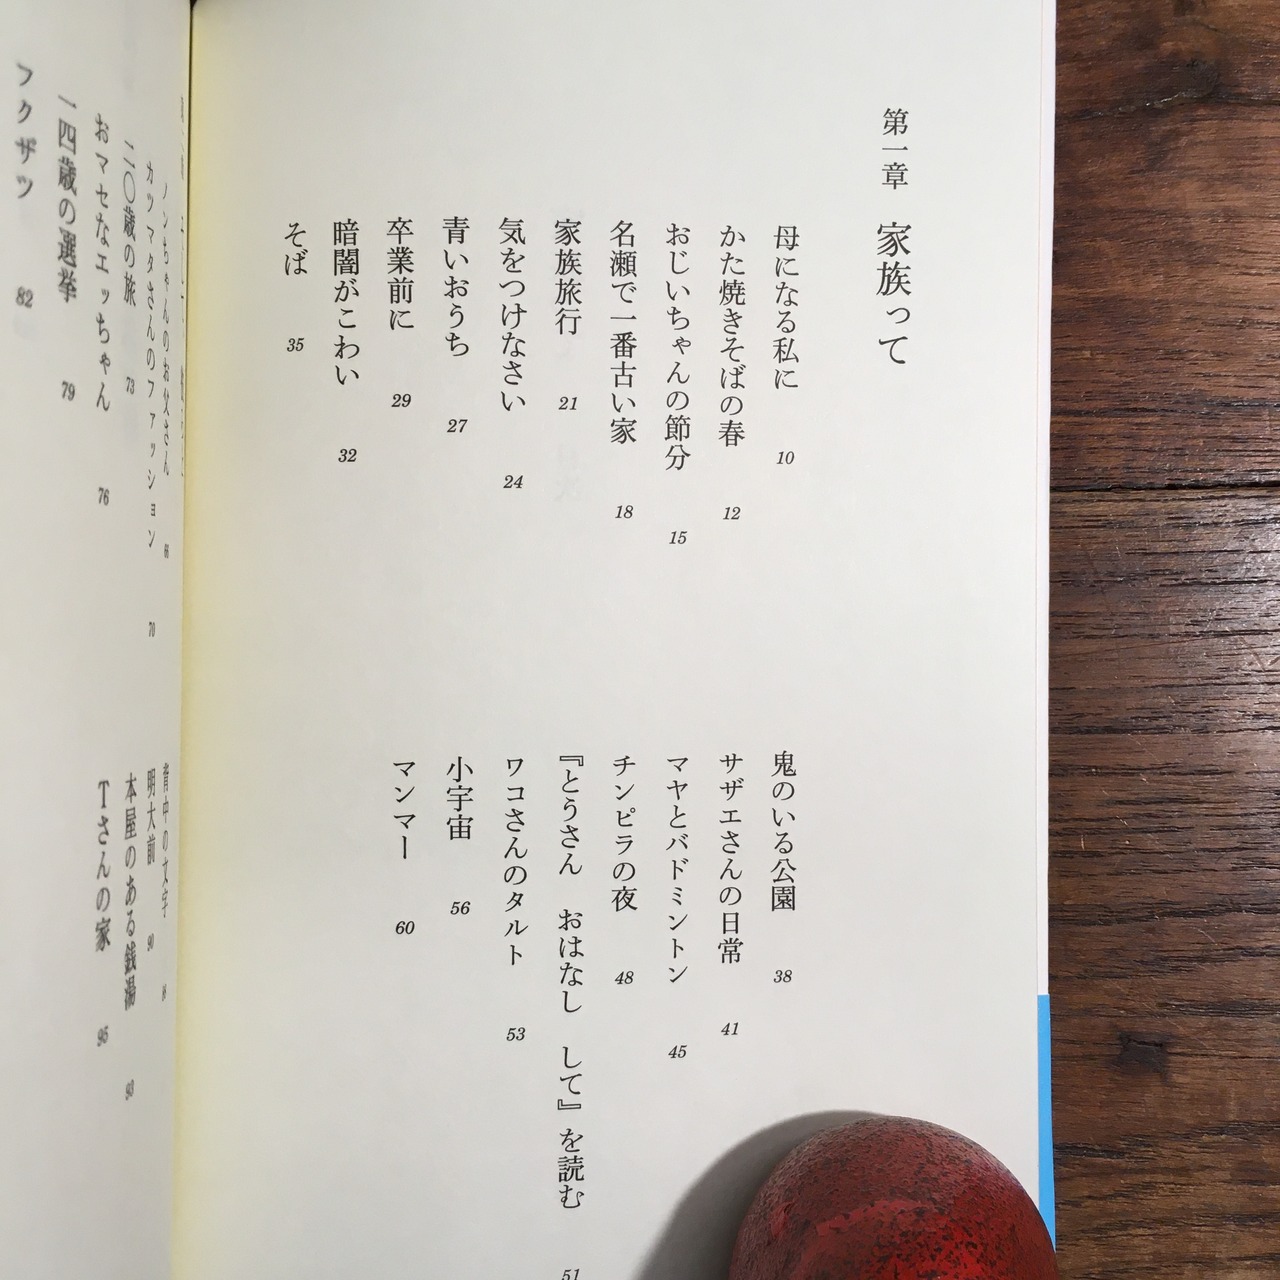 第一章 家族って
母になる私に 10
かた焼きそばの春 12
おじいちゃんの節分 15
名瀬で一番古い家 18
家族旅行 21
気をつけなさい 24
青いおうち 27
卒業前に 29
暗闇がこわい 32
そば 35
鬼のいる公園 38
サザエさんの日常 41
マヤとバドミントン 45
チンピラの夜 48
『とうさん おはなし して』を読む 51
ワコさんのタルト 53
小宇宙 56
マンマー 60
ノンちゃんのお父さん 66
カツマタさんのファッション 70
二〇歳の旅 73
おマセなエッちゃん 76
一四歳の選挙 79
フクザツ 82
背中の文字
明大前 90
本屋のある銭湯 93
Tさんの家 95